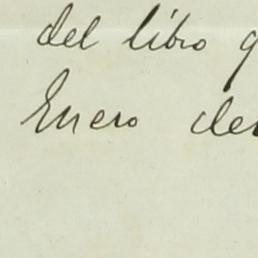 del libro
Enero